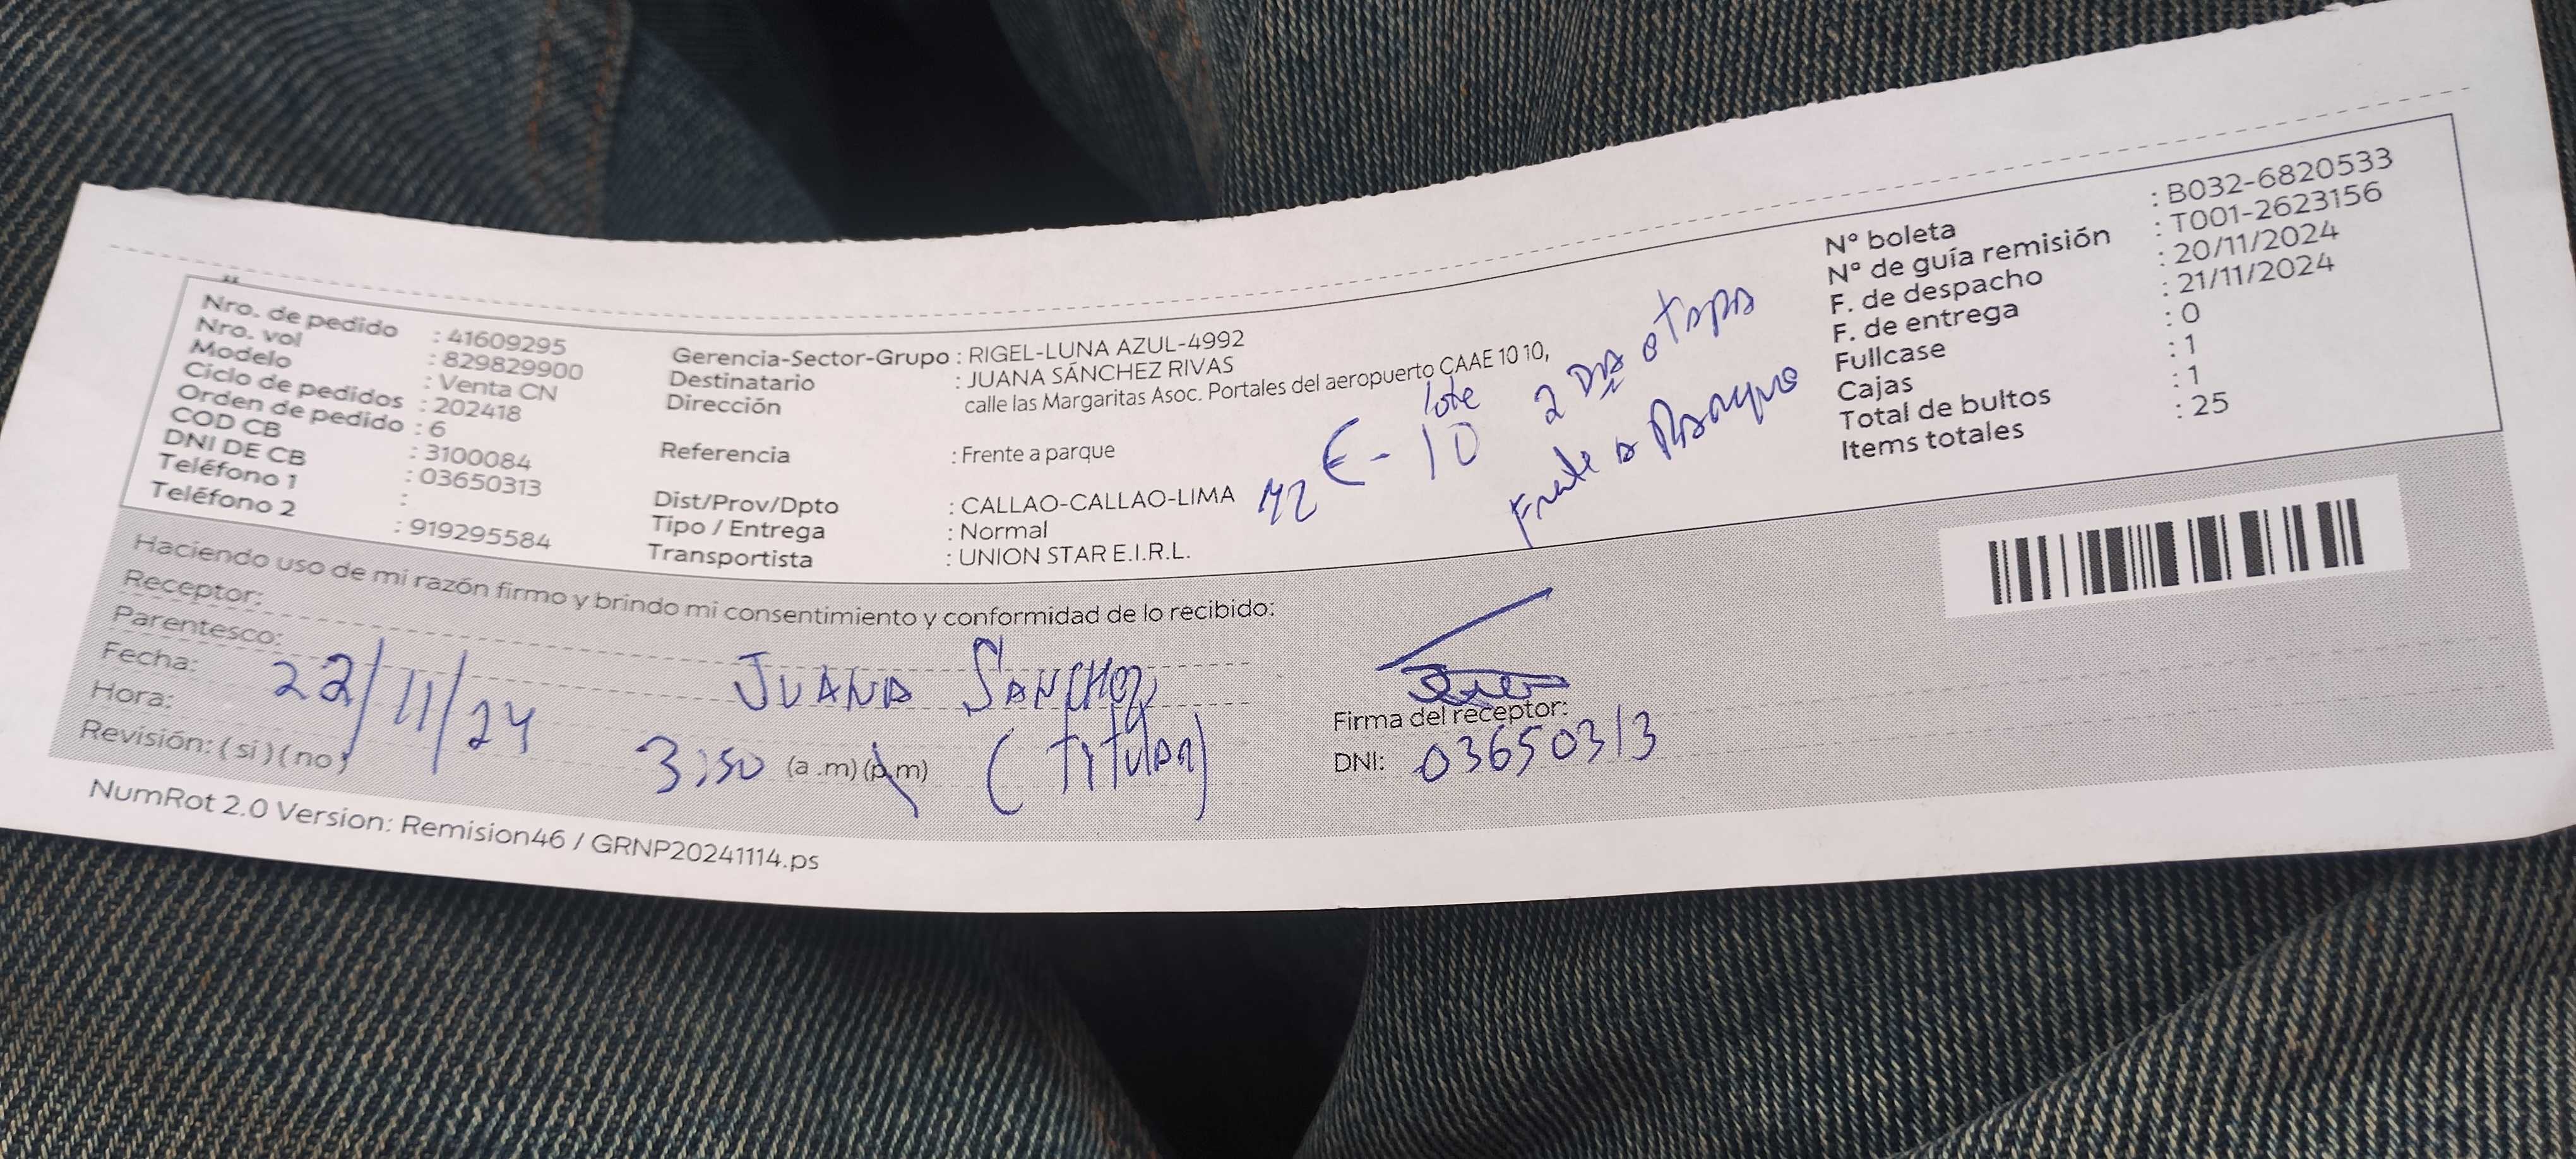 Nro. de pedido : 41609295
Nro. vol : 829829900
Modelo : Venta CN
Ciclo de pedidos : 202418
Orden de pedido : 6
COD CB : 3100084
DNI DE CB : 03650313
Teléfono 1 :
Teléfono 2 : 919295584
Gerencia-Sector-Grupo : RIGEL-LUNA AZUL-4992
Destinatario : JUANA SÁNCHEZ RIVAS
Dirección : calle las Margaritas Asoc. Portales del aeropuerto CAAE 10 10,
Referencia : Frente a parque
Dist/Prov/Dpto : CALLAO-CALLAO-LIMA
Tipo / Entrega : Normal
Transportista : UNION STAR E.I.R.L.
lote
MZ E - 10 2 Da etapa
Frente a Parque
N° boleta : B032-6820533
N° de guía remisión : T001-2623156
F. de despacho : 20/11/2024
F. de entrega : 21/11/2024
Fullcase : 0
Cajas : 1
Total de bultos : 1
Items totales : 25
Haciendo uso de mi razón firmo y brindo mi consentimiento y conformidad de lo recibido:
Receptor:
Parentesco: JUANA SANCHEZ
Fecha: 22/11/24
Hora: 3:50 (a .m) (p.m) (TITULAR)
Revisión: ( si ) ( no )
Firma del receptor:
DNI: 03650313
NumRot 2.0 Version: Remision46 / GRNP20241114.ps